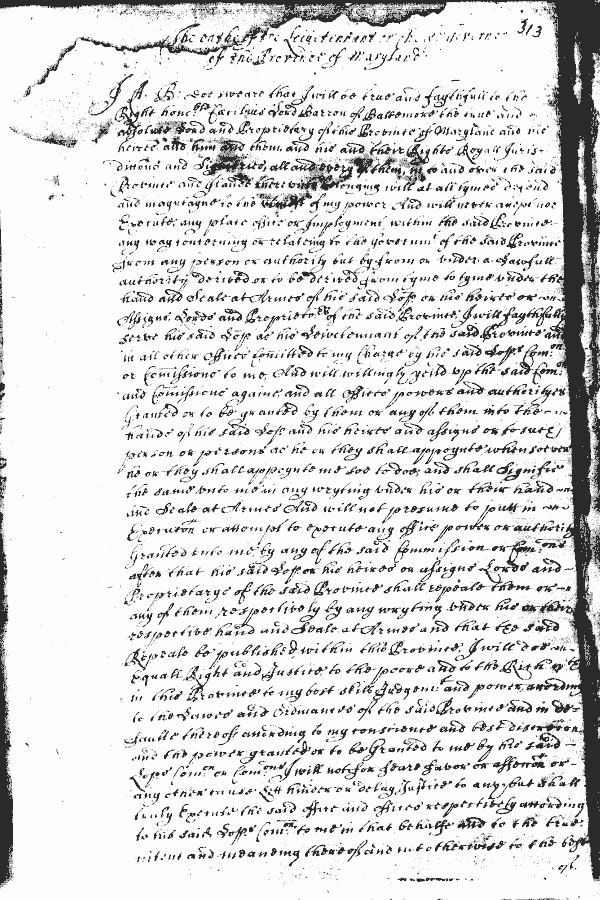 313
The oathe of the Leiuetennant or cheife Governor
of the Province of Maryland
I A: B: doe sweare that I will be true and faythfull to the
Right honoble Cæcilius Lord Barron of Baltemore the true and
absolute Lord and Proprietary of this Province of Maryland and his
heires and him and them and his and their Rights Royall Juris-
dictions and Signories, all and every of them, in to and over the said
Province and Islands thereunto belonging will at all tymes defend
and maynteyne to the utmost of my power And will never accept nor
Execute any place office or Imployment within the said Province
any way concerning or relateing to the governmt of the said Province
from any person or authority but by from or under a Lawfull
authority derived or to be derived from tyme to tyme under the
hand and Seale at Armes of his said Lopp or his heires or
Assignes Lords and Proprietors of the said Province, I will faythfully
serve his said Lopp as his Leivetennant of the said Province and
in all other offices Comitted to my Charge by his said Lopps Comon
or Comissions to me, And will willingly yeild up the said Com:
and Comissions againe and all offices powers and authorityes
Granted or to be granted by them or any of them into the
hands of his said Lopp and his heires and assignes or to such
person or persons as he or they shall appoynte whensoever
he or they shall appoynte me soe to doe, and shall Signifie
the same unto me in any wryting under his or their hand
and Seale at Armes And will not presume to putt in
Execution or attempt to execute any office power or authority
Granted unto me by any of the said Commission or Comons
after that his said Lopp or his heires or assigns Lords and
Proprietarys of the said Province shall repeale them or
any of them respectively by any wryting under his or their
respective hand and Seale at Armes and that the said
Repeale be published within this Province, I will doe
Equall Right and Justice to the poore and to the Rich
in this Province to my best skill Judgemt and power according
to the Lawes and Ordinances of the said Province and in de-
faulte thereof according to my conscience and best discretion
and the power granted or to be Granted to me by his said
Lopps Comon or Comons I will not for feare favor or affection or
any other cause Lett hinder or delay Justice to any, but shall
truly Execute the said office and offices respectively according
to his said Lopps Comon to me in that behalfe and to the true
intent and meaneing thereof and not otherwise to the best
of